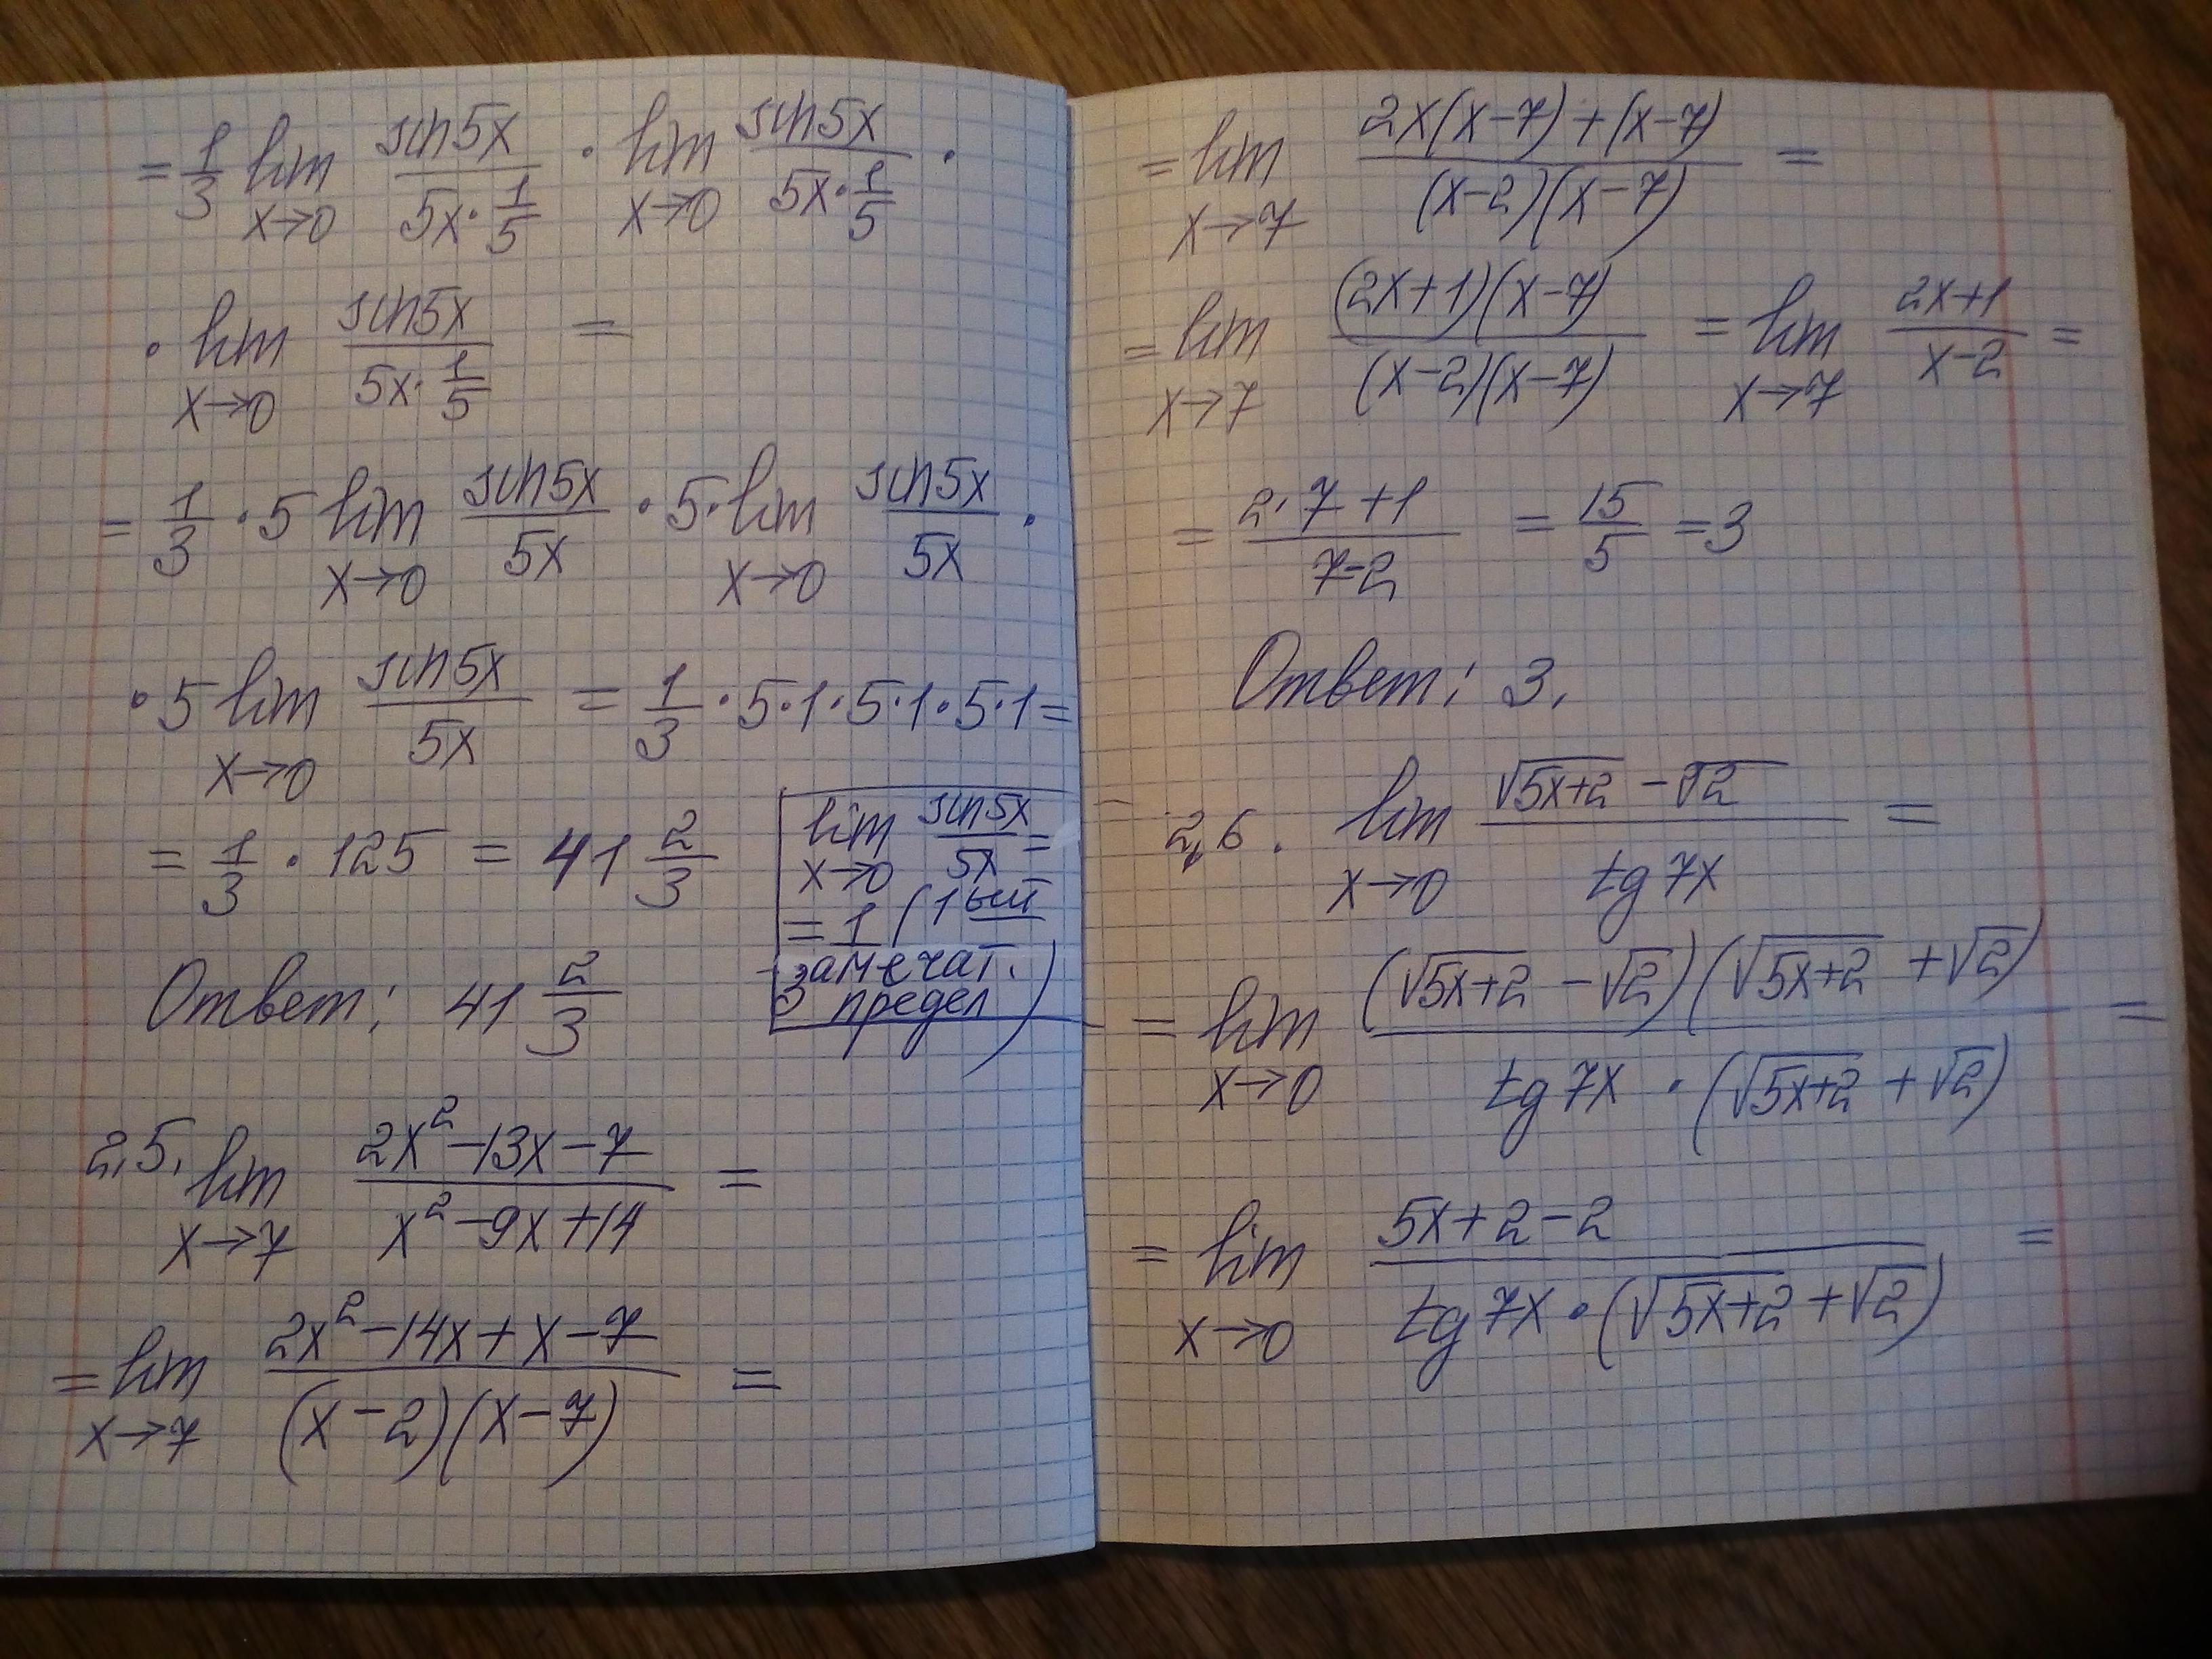 = 1/3 lim x→0 sin5x/(5x·1/5) · lim x→0 sin5x/(5x·1/5) ·
· lim x→0 sin5x/(5x·1/5) =
= 1/3 · 5 lim x→0 sin5x/5x · 5 · lim x→0 sin5x/5x ·
· 5 lim x→0 sin5x/5x = 1/3 · 5·1·5·1·5·1 =
= 1/3 · 125 = 41 2/3
lim x→0 sin5x/5x =
= 1 (1ый
замечат.
предел)
Ответ: 41 2/3
2.5. lim x→7 (2x²-13x-7)/(x²-9x+14) =
= lim x→7 (2x²-14x+x-7)/((x-2)(x-7)) =
= lim x→7 (2x(x-7)+(x-7))/((x-2)(x-7)) =
= lim x→7 ((2x+1)(x-7))/((x-2)(x-7)) = lim x→7 (2x+1)/(x-2) =
= (2·7+1)/(7-2) = 15/5 = 3
Ответ: 3.
2.6. lim x→0 (√(5x+2) - √2)/(tg7x) =
= lim x→0 ((√(5x+2) - √2)(√(5x+2) + √2))/(tg7x · (√(5x+2) + √2)) =
= lim x→0 (5x+2-2)/(tg7x · (√(5x+2) + √2)) =